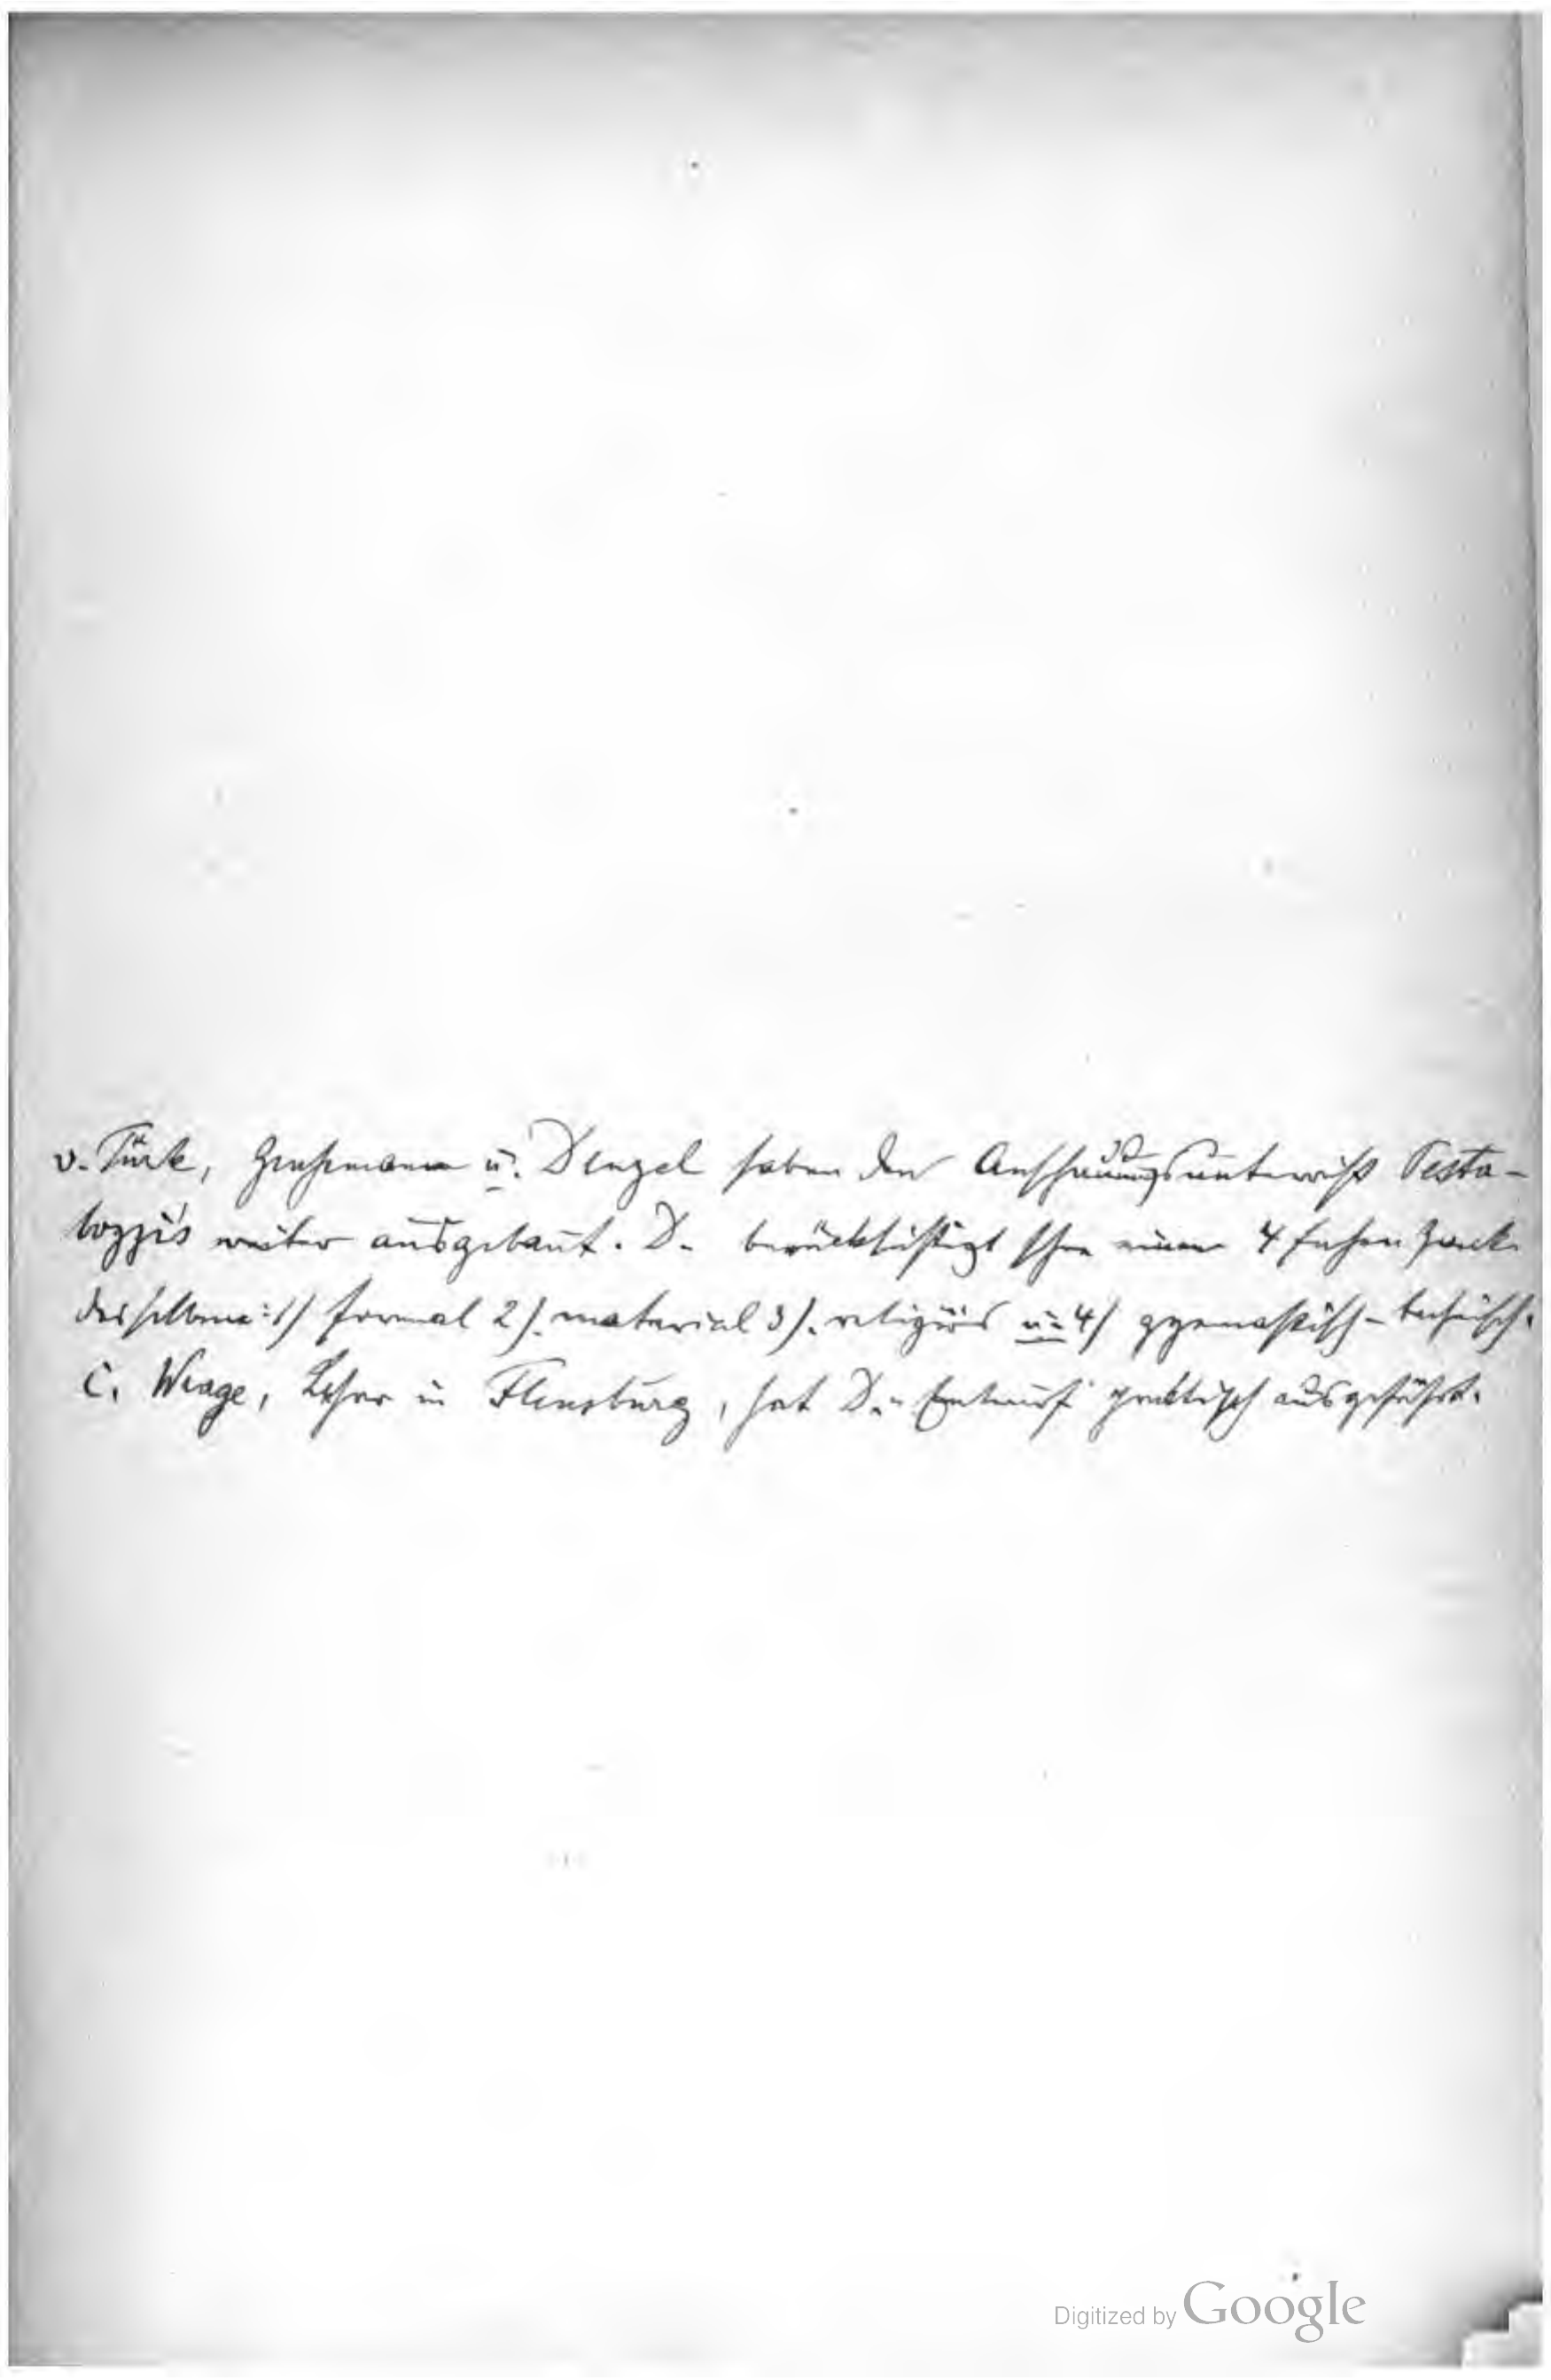 v. Türk, Graßmann u. Denzel haben den Anschauungsunterricht Pesta-
lozzi's weiter ausgebaut. D. berücksichtigt schon einen 4 fachen Zweck
desselben: 1) formal 2). material 3). religiös u. 4) gymnastisch-technisch.
C. Wrage, Lehrer in Flensburg, hat D.'s Entwurf praktisch ausgeführt.
Digitized by Google